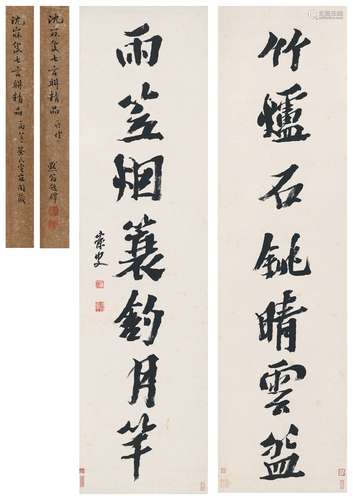 竹爐石銚晴雲盌
雨笠烟蓑釣月竿
寐叟
沈寐叟七言聯精品
沈寐叟七言聯精品